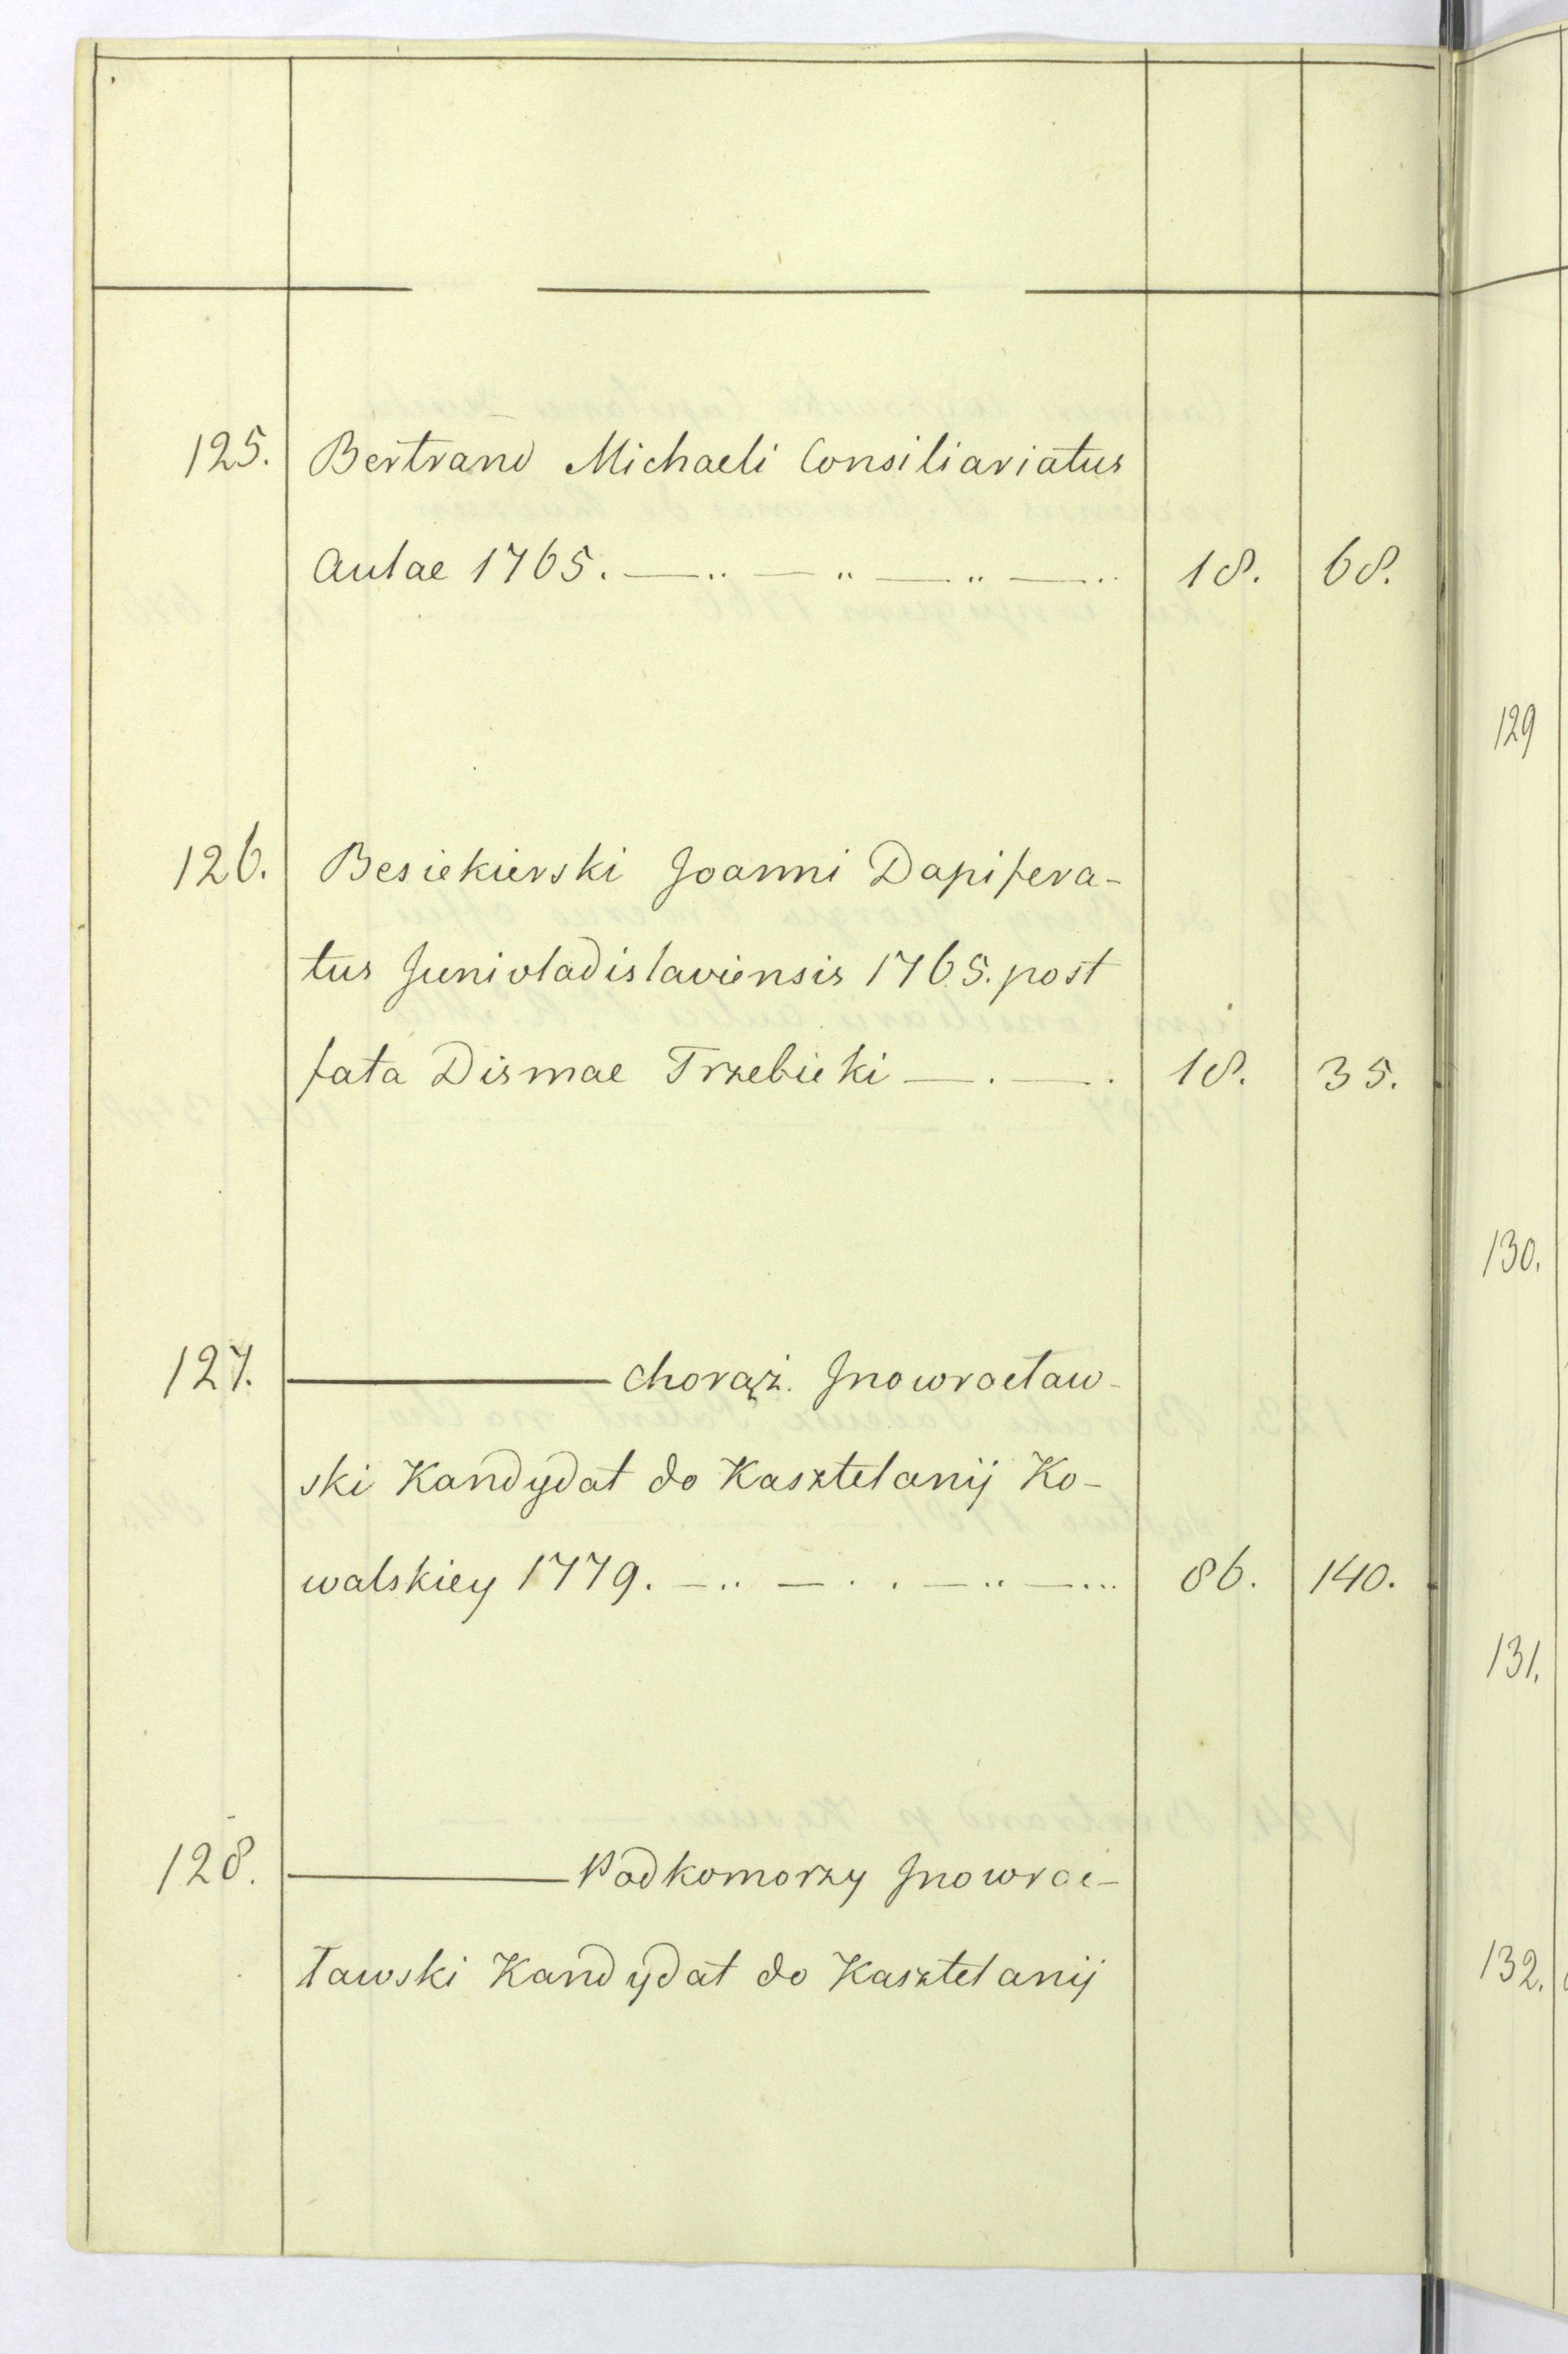 125. Bertrand Michaeli Consiliariatus
Aulae 1765. —..—"—..—.. 18. 68.
126. Besiekierski Joanni Dapifera-
tus Junivladislaviensis 1765. post
fata Dismae Trzebicki —.—. 18. 35.
127. ——— Chorąż. Jnowrocław-
ski Kandydat do Kasztelanij Ko-
walskiey 1779. —..—..—..—... 86. 140.
128. ——— Podkomorzy Jnowroc-
ławski Kandydat do Kasztelanij
129
130.
131.
132.